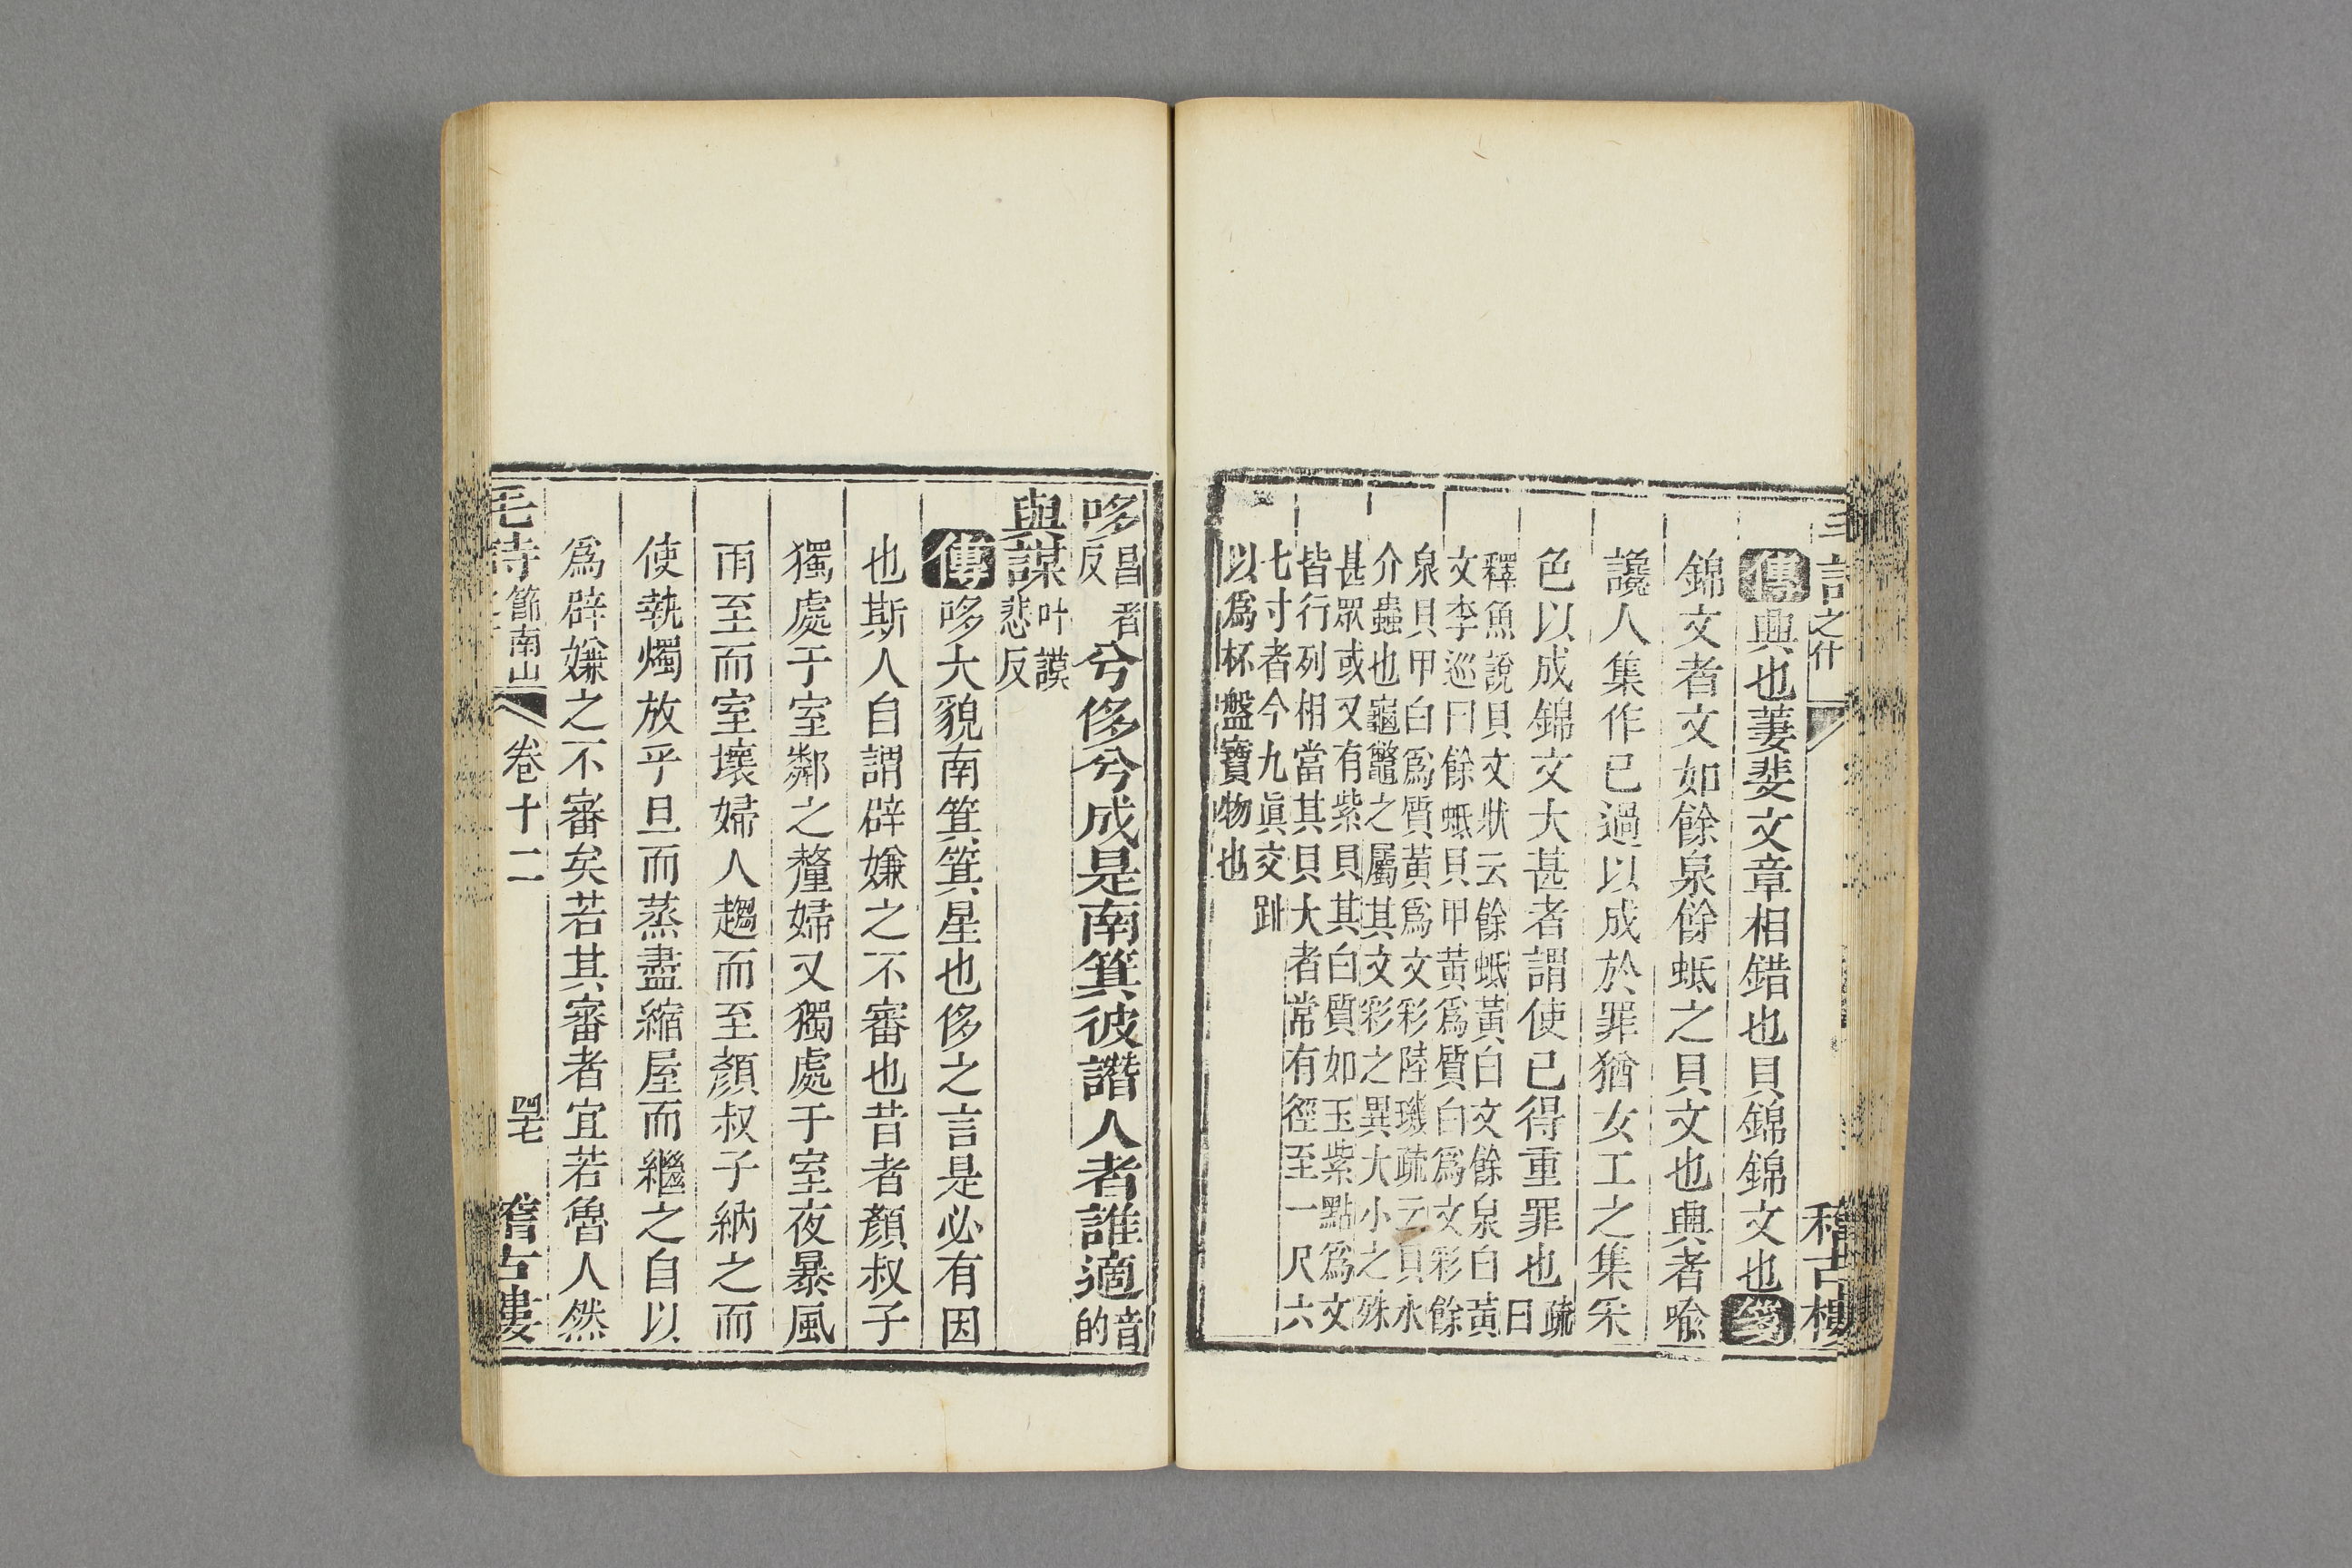 詩之什 稽古樓
傳興也萋斐文章相錯也貝錦錦文也箋
錦文者文如餘泉餘蚳之貝文也興者喩
讒人集作已過以成於罪猶女工之集采
色以成錦文大甚者謂使已得重罪也疏曰
釋魚說貝文狀云餘蚳黃白文餘泉白黃
文李巡曰餘蚳貝甲黃爲質白爲文彩餘
泉貝甲白爲質黃爲文彩陸璣疏云貝水
介蟲也龜鼈之屬其文彩之異大小之殊
甚眾或又有紫貝其白質如玉紫點爲文
皆行列相當其貝大者常有徑至一尺六
七寸者今九眞交趾
以爲杯盤寶物也
哆昌者反兮侈兮成是南箕彼譖人者誰適音的
與謀叶謨悲反
傳哆大貌南箕箕星也侈之言是必有因
也斯人自謂辟嫌之不審也昔者顏叔子
獨處于室鄰之釐婦又獨處于室夜暴風
雨至而室壞婦人趨而至顏叔子納之而
使執燭放乎旦而蒸盡縮屋而繼之自以
爲辟嫌之不審矣若其審者宜若魯人然
毛詩節南山 卷十二 四七 稽古樓